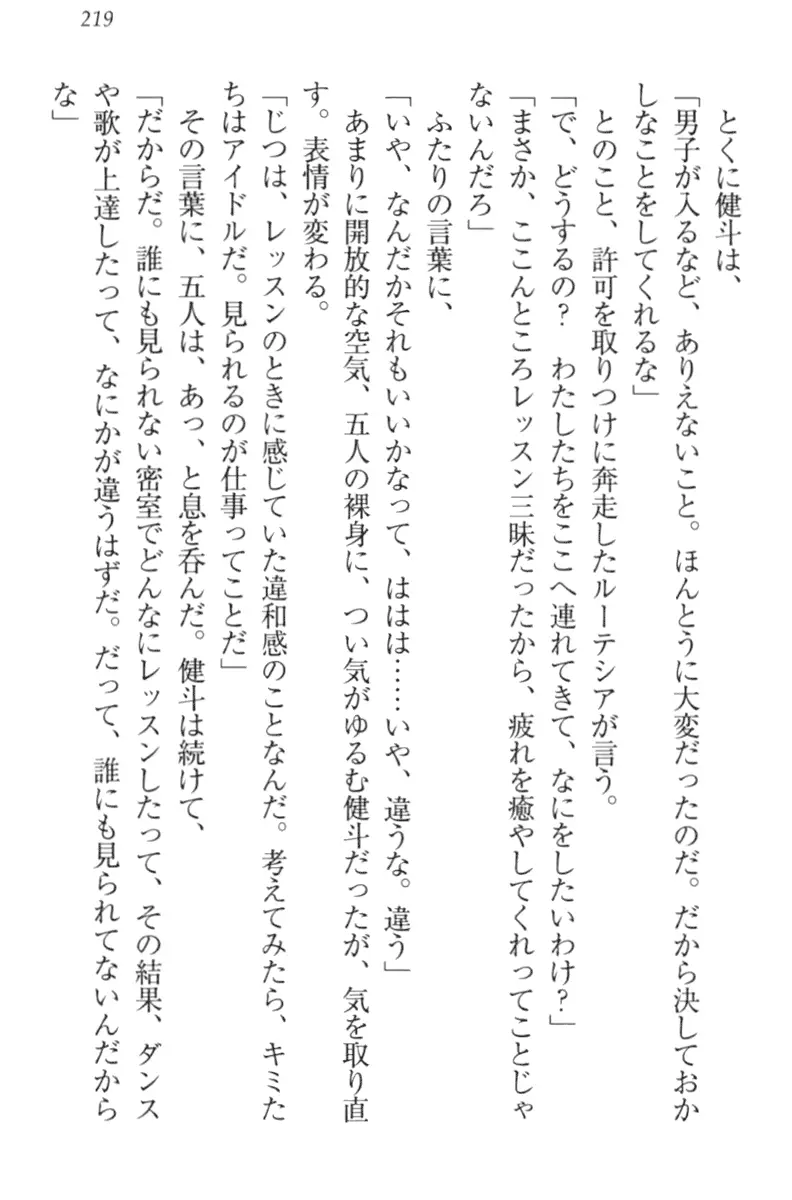 219
とくに健斗は、
「男子が入るなど、ありえないこと。ほんとうに大変だったのだ。だから決しておか
しなことをしてくれるな」
とのこと、許可を取りつけに奔走したルーテシアが言う。
「で、どうするの？　わたしたちをここへ連れてきて、なにをしたいわけ？」
「まさか、ここんところレッスン三昧だったから、疲れを癒やしてくれってことじゃ
ないんだろ」
ふたりの言葉に、
「いや、なんだかそれもいいかなって、ははは……いや、違うな。違う」
あまりに開放的な空気、五人の裸身に、つい気がゆるむ健斗だったが、気を取り直
す。表情が変わる。
「じつは、レッスンのときに感じていた違和感のことなんだ。考えてみたら、キミた
ちはアイドルだ。見られるのが仕事ってことだ」
その言葉に、五人は、あっ、と息を呑んだ。健斗は続けて、
「だからだ。誰にも見られない密室でどんなにレッスンしたって、その結果、ダンス
や歌が上達したって、なにかが違うはずだ。だって、誰にも見られてないんだから
な」